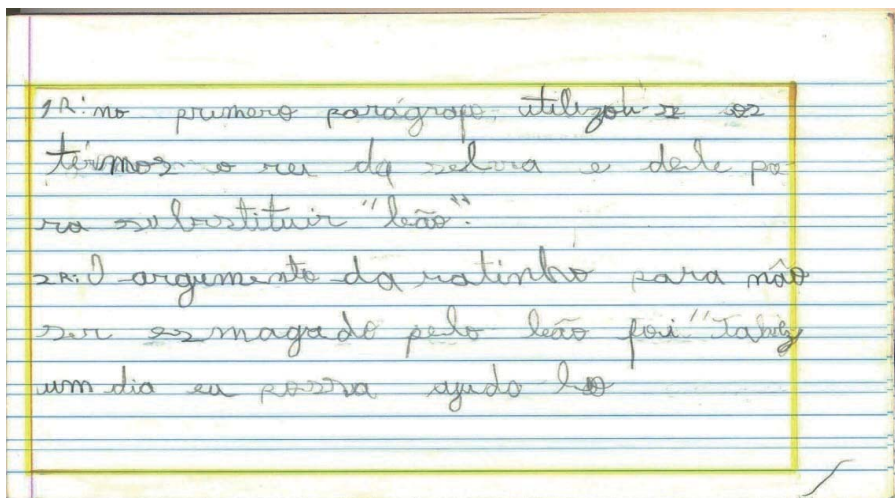 1R: no primero parágrafo utilizou-se os
termos o rei da selva e dele pa-
ra substituir "leão".
2R: O argumento da ratinho para não
ser esmagado pelo leão foi "talvez
um dia eu possa ajuda lo